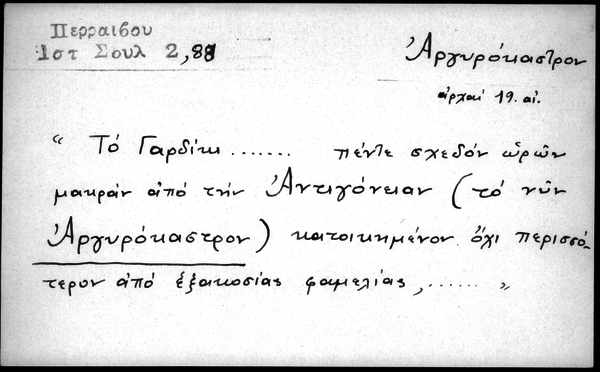 Περραιβου
Ιστ Σουλ 2,88
Ἀργυρόκαστρον
ἀρχαί 19. αἰ.
“ Τό Γαρδίκι ....... πέντε σχεδόν ὡρῶν
μακράν ἀπό τήν Ἀντιγόνειαν (τό νῦν
Ἀργυρόκαστρον) κατοικημένον ὄχι περισσό-
τερον ἀπό ἑξακοσίας φαμελίας, ...... „